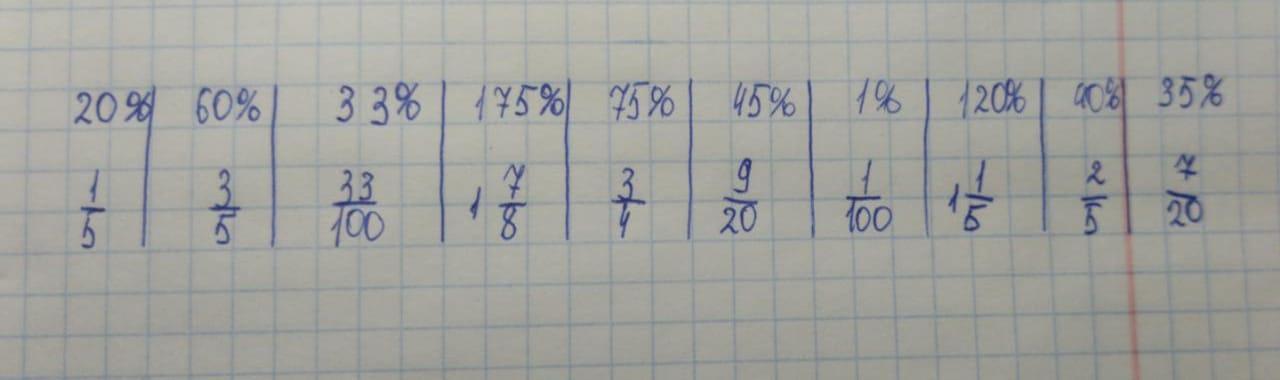 20% | 60% | 33% | 175% | 75% | 45% | 1% | 120% | 40% | 35%
1/5 | 3/5 | 33/100 | 1 7/8 | 3/4 | 9/20 | 1/100 | 1 1/5 | 2/5 | 7/20